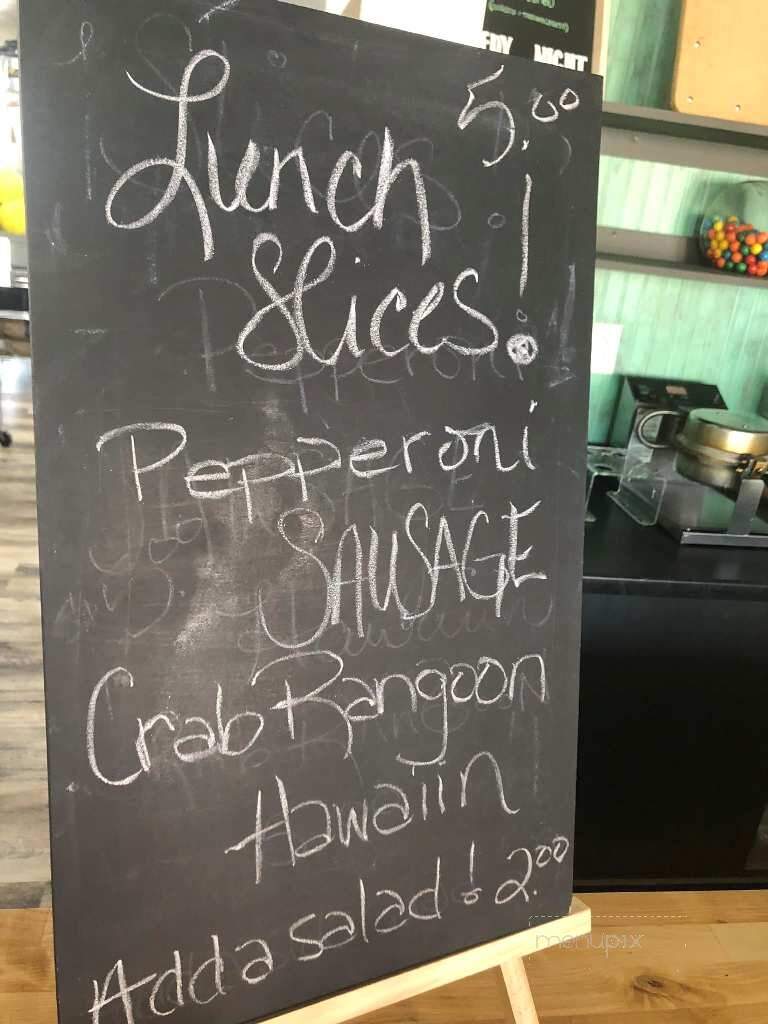 ERY NIGHT
5.00
Lunch
Slices!
Pepperoni
SAUSAGE
Crab Rangoon
Hawaiin
Add a salad! 2.00
menupix